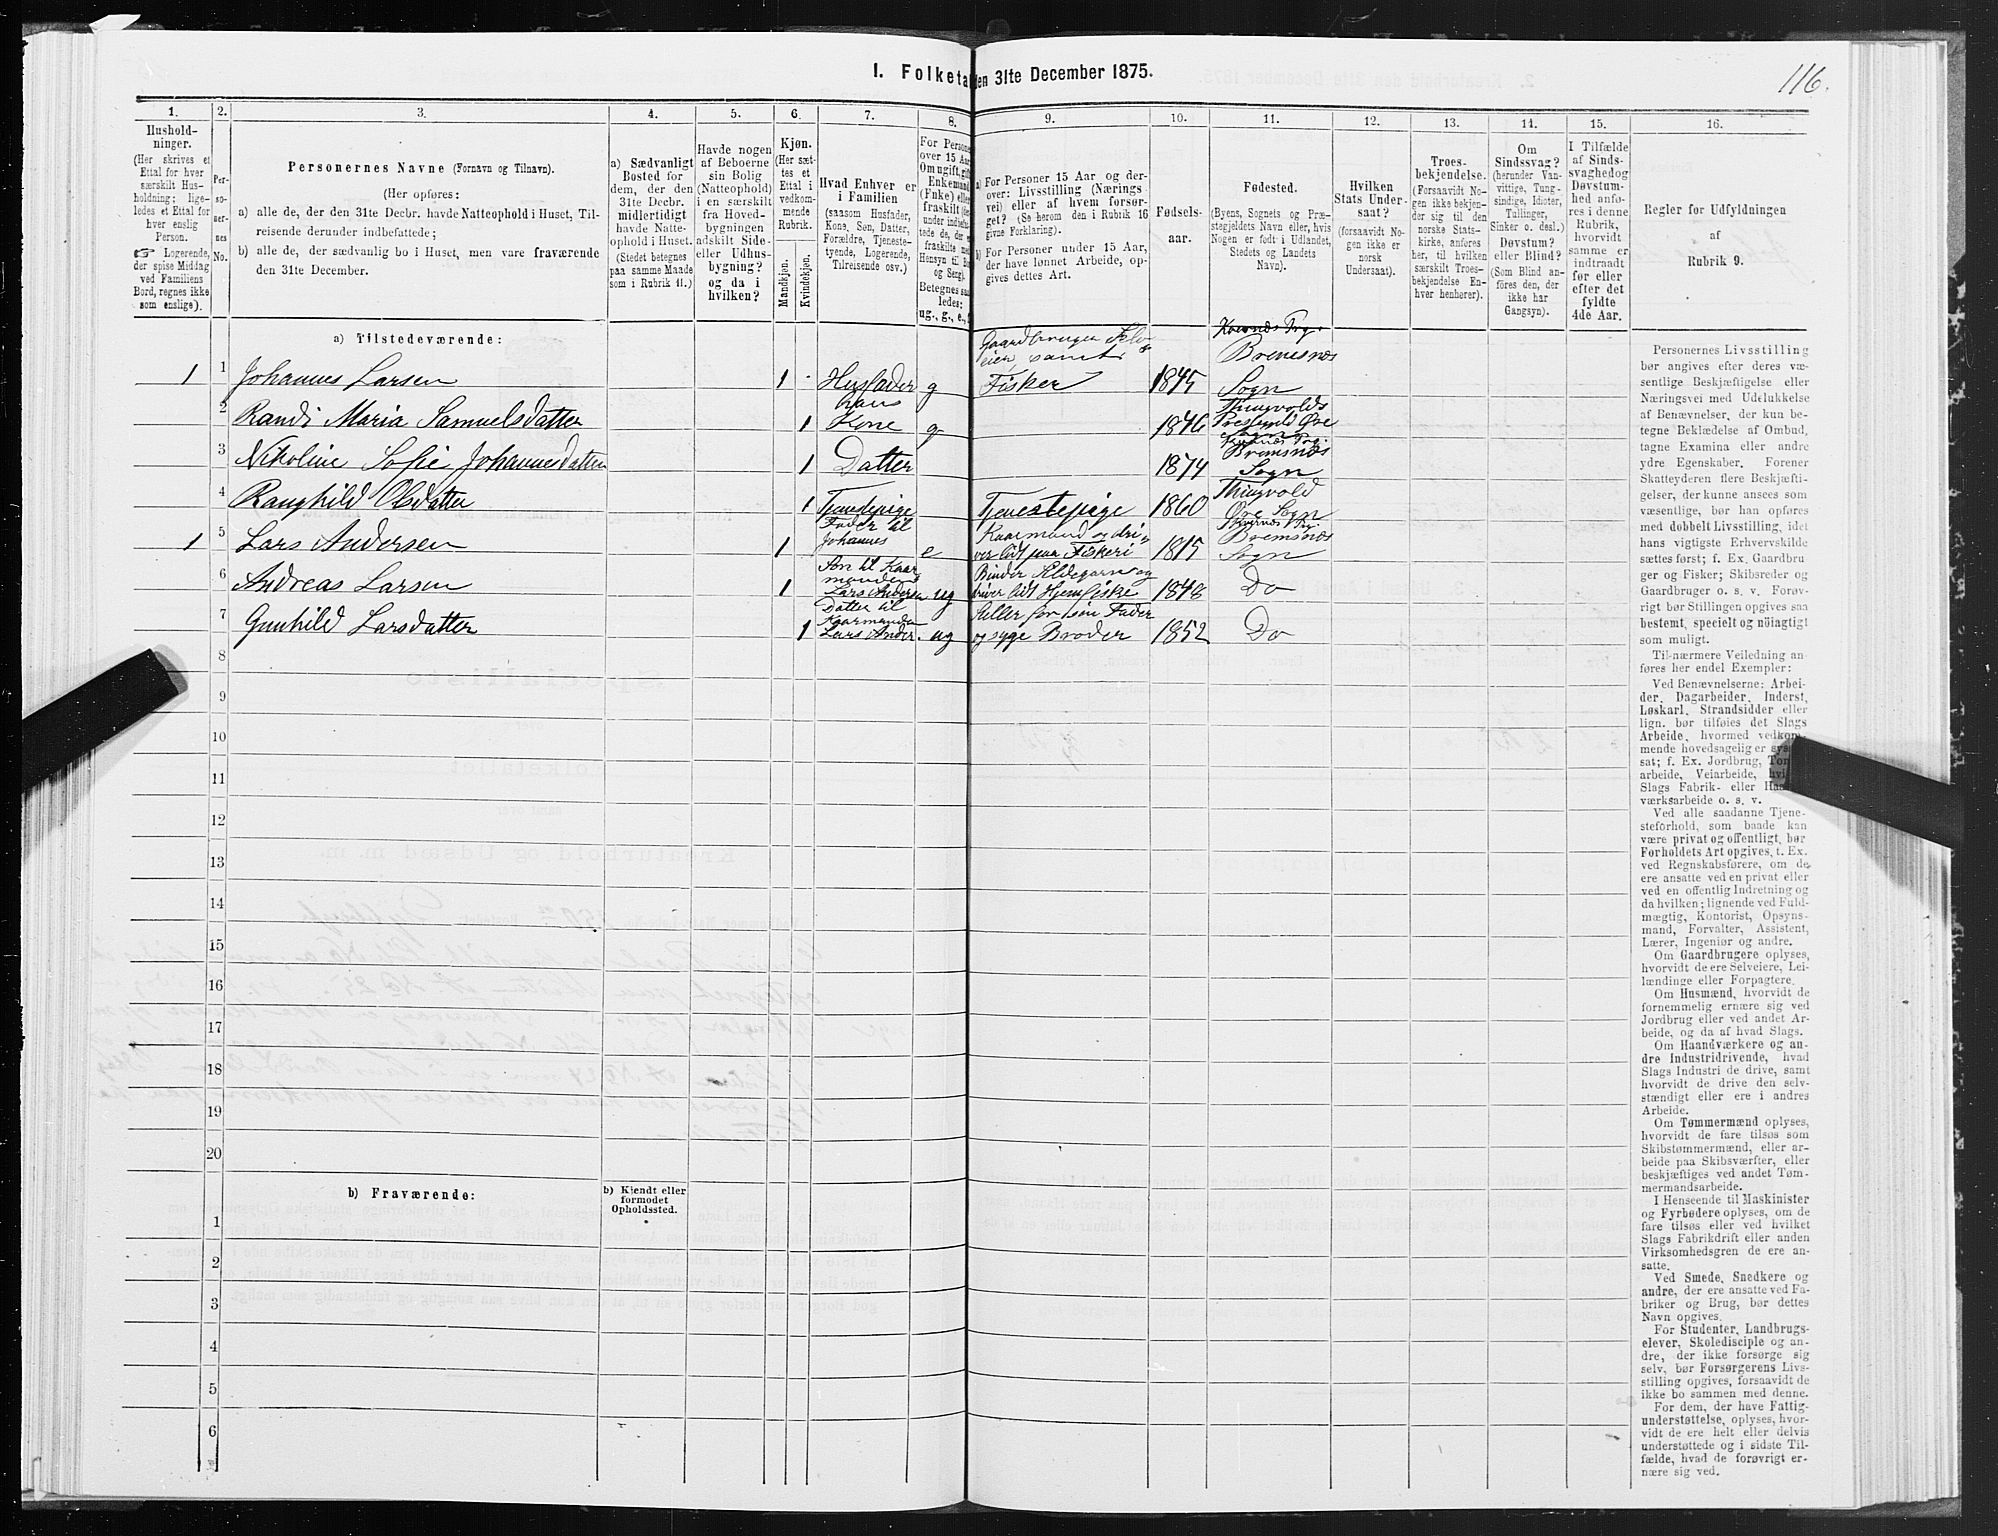 I. Folketa den 31te December 1875.
116.
1.
2.
3.
4.
5.
6.
7.
8.
9.
10.
11.
12.
13.
14.
15.
16.
Hushold-
ninger.
(Her skrives et
Ettal for hver
særskilt Hus-
holdning; lige-
ledes et Ettal for
hver enslig
Person.
☞ Logerende,
der spise Middag
ved Familiens
Bord, regnes ikke
som enslige).
Per-
so-
ner-
nes
No.
Personernes Navne (Fornavn og Tilnavn).
(Her opføres:
a) alle de, der den 31te Decbr. havde Natteophold i Huset, Til-
reisende derunder indbefattede;
b) alle de, der sædvanlig bo i Huset, men vare fraværende
den 31te December.
a) Sædvanligt
Bosted for
dem, der den
31te Decbr.
midlertidigt
havde Natte-
ophold i Huset.
(Stedet betegnes
paa samme Maade
som i Rubrik 11.)
Havde nogen
af Beboerne
sin Bolig
(Natteophold)
i en særskilt
fra Hoved-
bygningen
adskilt Side-
eller Udhus-
bygning?
og da i
hvilken?
Kjøn.
(Her sæt-
tes et
Ettal i
vedkom-
mende
Rubrik.
Mandkjøn.
Kvindekjøn.
Hvad Enhver er
i Familien
(saasom Husfader,
Kone, Søn, Datter,
Forældre, Tjeneste-
tyende, Logerende,
Tilreisende osv.)
For Persone
over 15 Aar
Om ugift, gift
Enkemand
(Enke) eller
fraskilt
under indbefat-
tede de, der e
fraskilte med
Hensyn til Bo
og Seng).
Betegnes saa-
ledes:
ug., g., e., f
a) For Personer 15 Aar og der-
over: Livsstilling (Nærings
vei) eller af hvem forsør-
get? (Se herom den i Rubrik 16
givne Forklaring).
b) For Personer under 15 Aar,
der have lønnet Arbeide, op-
gives dettes Art.
Fødsels-
aar.
Fødested.
(Byens, Sognets og Præ-
stegjeldets Navn eller, hvis
Nogen er født i Udlandet,
Stedets og Landets
Navn).
Hvilken
Stats Under-
saat?
(forsaavidt No-
gen ikke er
norsk
Undersaat).
Troes-
bekjendelse.
(Forsaavidt No-
gen ikke bekjen-
der sig til den
norske Stats-
kirke, anføres
her, til hvilken
særskilt Troes-
bekjendelse En-
hver henhører).
Om
Sindssvag?
(herunder Van-
vittige, Tung-
sindige, Idioter,
Tullinger,
Sinker o. desl.)
Døvstum?
eller Blind?
(Som Blind an-
føres den, der
ikke har
Gangsyn).
I Tilfælde
af Sinds-
svaghed og
Døvstum-
hed anfø-
res i denne
Rubrik,
hvorvidt
samme er
indtraadt
før eller
efter det
fyldte
4de Aar.
Regler før Udfyldningen
af
Rubrik 9.
a) Tilstedeværende:
1 1 Johannes Larsen 1 Husfader g Gaardbruger Selv-
eier samt
Fisker 1845 Kvernæs Prg.
Bremesnæs
Sogn
2 Randi Maria Samuelsdatter 1 hans
Kone g 1846 Thingvolds
Prestegjld Øre
Sogn
3 Nikoline Sofie Johannesdatter 1 Datter 1874 Kvernæs Prg.
Bremsnæs
Sogn
4 Ranghild Olsdatter 1 Tjenstepige Tjenestepige 1860 Thingvold
Øre Sogn
1 5 Lars Andersen 1 Fader til
Johannes e Kaarmand og dri-
ver lidt paa Fiskeri 1815 Kvernæs Prg.
Bremsnæs
Sogn
6 Andreas Larsen 1 Søn til Kaar
mandens
Lars Andersen ug Binder Sildegarn og
driver lidt Hjemfiske 1848 Do
7 Gunhild Larsdatter 1 Datter til
Kaarmanden
Lars Ander. ug Steller for sin Fader
og syge Broder 1852 Do
8
9
10
11
12
13
14
15
16
17
18
19
20
b) Fraværende:
b) Kjendt eller
formodet
Opholdssted.
1
2
3
4
5
6
Personernes Livsstilling
bør angives efter deres væ-
sentlige Beskjæftigelse eller
Næringsvei med Udelukkelse
af Benævnelser, der kun be-
tegne Beklædelse af Ombud,
tagne Examina eller andre
ydre Egenskaber. Forener
Skatteyderen flere Beskjæfti-
gelser, der kunne ansees som
væsentlige, bør han opføres
med dobbelt Livsstilling, idet
hans vigtigste Erhvervskilde
sættes først; f. Ex. Gaardbru
ger og Fisker; Skibsreder og
Gaardbruger o. s. v. Forøv-
rigt bør Stillingen opgives saa
bestemt, specielt og nöiagtigt
som muligt.
Til-nærmere Veiledning an-
føres her endel Exempler:
Ved Benævnelserne: Arbei-
der, Dagarbeider, Inderst,
Løskarl, Strandsidder eller
lign. bør tilføies det Slags
Arbeide, hvormed vedkom-
mende hovedsagelig er syssel
sat; f. Ex. Jordbrug, Tom
arbeide, Veiarbeide, hvi
Slags Fabrik- eller Haa
værksarbeide o. s. v.
Ved alle saadanne Tjene-
steforhold, som baade kan
være privat og offentligt, bør
Forholdets Art opgives, t. Ex.
ved Regnskabsførere, om de
ere ansatte ved en privat eller
ved en offentlig Indretning og
da hvilken; lignende ved Fuld-
mægtig, Kontorist, Opsyns-
mand, Forvalter, Assistent,
Lærer, Ingeniør og andre.
Om Gaardbrugere oplyses,
hvorvidt de ere Selveiere, Lei-
lændinge eller Forpagtere.
Om Husmænd, hvorvidt de
fornemmelig ernære sig ved
Jordbrug eller ved andet Ar-
beide, og da af hvad Slags.
Om Haandværkere og an-
dre Industridrivende, hvad
Slags Industri de drive, samt
hvorvidt de drive den selv-
stændigt eller ere i andres
Arbeide.
Om Tømmermænd oplyses,
hvorvidt de fare tilsøs som
Skibstømmermænd, eller ar-
beide paa Skibsværfter, eller
beskjæftiges ved andet Tøm-
mermandsarbeide.
I Henseende til Maskinister
og Fyrbødere oplyses, om de
fare tilsøs eller ved hvilket
Slags Fabrikdrift eller anden
Virksomhedsgren de ere an-
satte.
Ved Smede, Snedkere og
andre, der ere ansatte ved Fa-
briker og Brug, bør dettes
Navn opgives.
For Studenter, Landbrugs-
elever, Skoledisciple og an-
dre, der ikke forsørge sig
selv, bør Forsørgerens Livs-
stilling opgives, forsaavidt de
ikke bo sammen med denne.
For dem, der have Fattig-
understøttelse, oplyses, hvor-
vidt de ere helt eller delvis
understøttede og i sidste Til-
fælde, hvad de forøvrigt er-
nære sig ved.